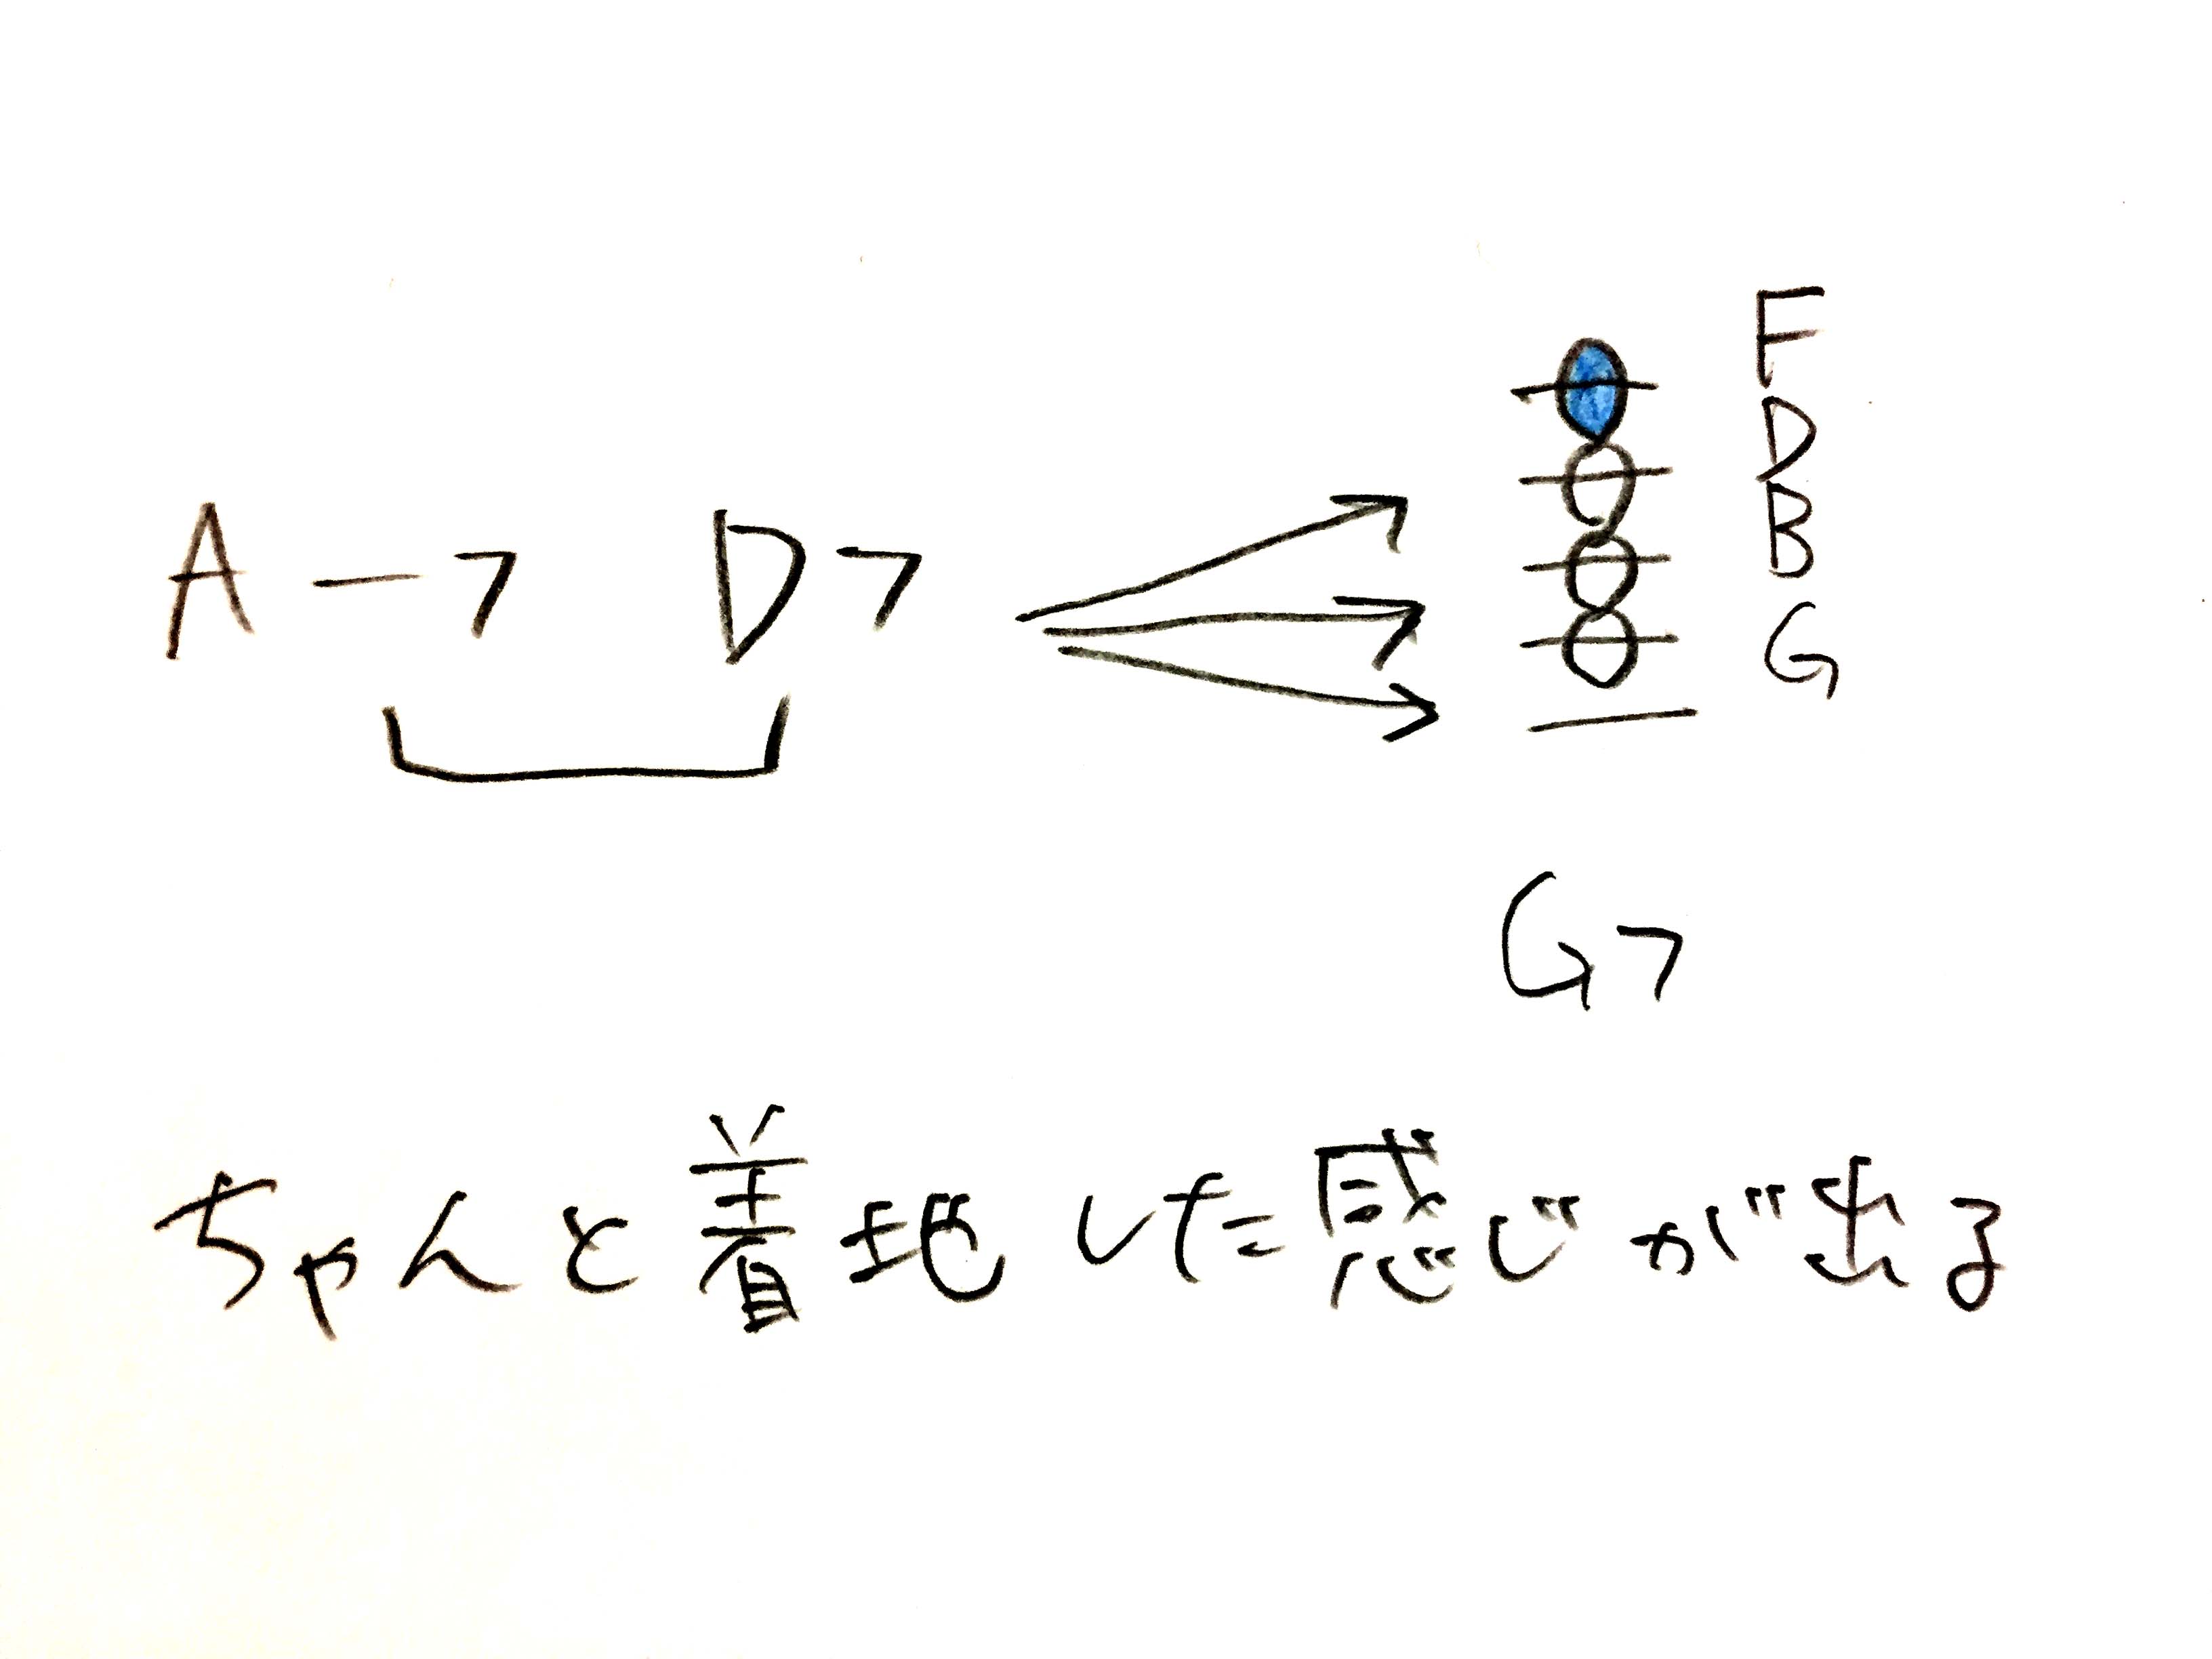 F
D
A-7 D7
B
G
G7
ちゃんと着地した感じが出る